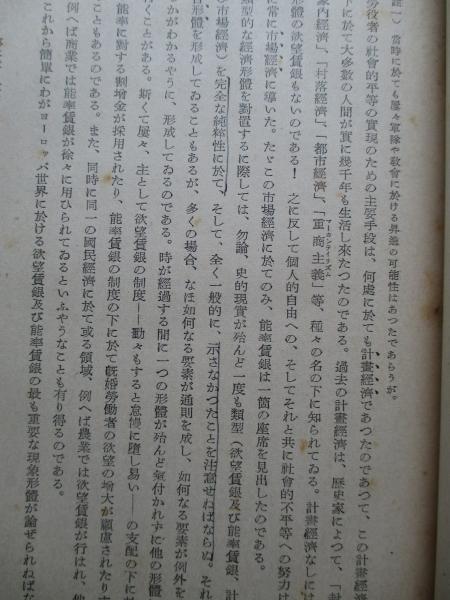 註一) 當時に於ても屢々軍隊や敎會に於ける昇進の可能性はあつたであらうが。
勞役者の社會的平等の實現のための主要手段は、何處に於ても計畫經濟であつたのであつて、この計畫經濟
下に於て大多數の人間が實に幾千年も生活し來たつたのである。過去の計畫經濟は、歷史家によつて、「封
家內經濟」、「村落經濟」、「都市經濟」、「重商主義」等 種々の名の下に知られてゐる。計畫經濟なしには
マーカンティリズム
形體の欲望賃銀もないのである! 之に反して個人的自由への、そしてそれと共に社會的不平等への努力は
に常に市場經濟に導いた。たゞこの市場經濟に於てのみ、能率賃銀は一箇の座席を見出したのである。
類型的な經濟形體を對置するに際しては、勿論、史的現實が殆んど一度も類型(欲望賃銀及び能率賃銀、計
び市場經濟)を完全な純粹性に於て、そして、全く一般的に、示さなかつたことを注意せねばならぬ。それ
形體を形成してゐることもあるが、多くの場合、なほ如何なる要素が通則を成し、如何なる要素が例外を
かがわかるやうに、形成してゐるのである。時が經過する間に一つの形體が殆んど氣付かれずに他の形體
行くことがある。斯くて屢々、主として欲望賃銀の制度——動々もすると怠惰に墮し易い——の支配の下に
能率に對する割增金が採用されたり、能率賃銀の制度の下に於て旣婚勞働者の欲望の增大が顧慮されたり
こともあるのである。また、同時に同一の國民經濟に於て或る領域、例へば農業では欲望賃銀が行はれ、他
例へば商業では能率賃銀が徐々に用ひられてゐるといふやうなことも有り得るのである。
これから簡單にわがヨーロッパ世界に於ける欲望賃銀及び能率賃銀の最も重要な現象形體が論ぜられねばな